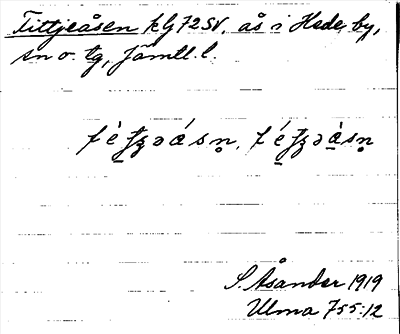 Tittjeåsen kG72SV. ås i Hede by,
sn o. tg, Jämtl. l.
S. Åsander 1919
Ulma 755:12